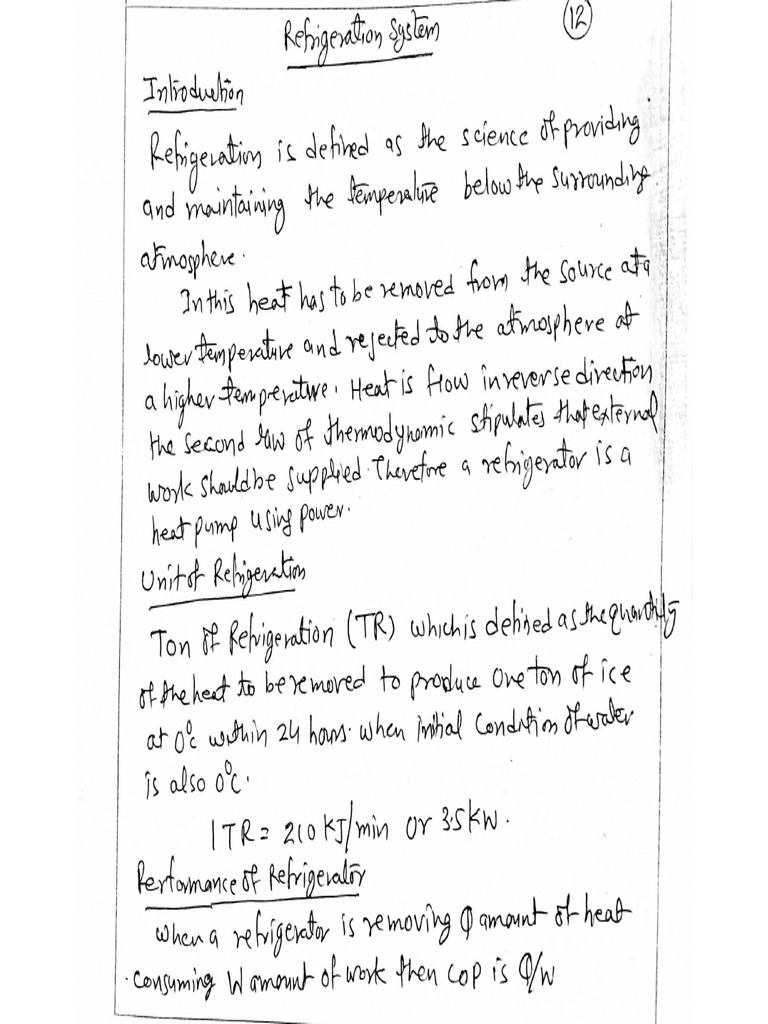 12
Refrigeration System
Introduction
Refrigeration is defined as the science of providing
and maintaining the temperature below the surrounding
atmosphere.
In this heat has to be removed from the source at a
lower temperature and rejected to the atmosphere at
a higher temperature. Heat is flow in reverse direction
the second law of thermodynamic stipulates that external
work should be supplied. Therefore a refrigerator is a
heat pump using power.
Unit of Refrigeration
Ton of Refrigeration (TR) which is defined as the quantity
of the heat to be removed to produce one ton of ice
at 0°C within 24 hours. when initial condition of water
is also 0°C.
1 TR = 210 KJ/min or 3.5 KW.
Performance of Refrigerator
when a refrigerator is removing Q amount of heat
consuming W amount of work then COP is Q/W